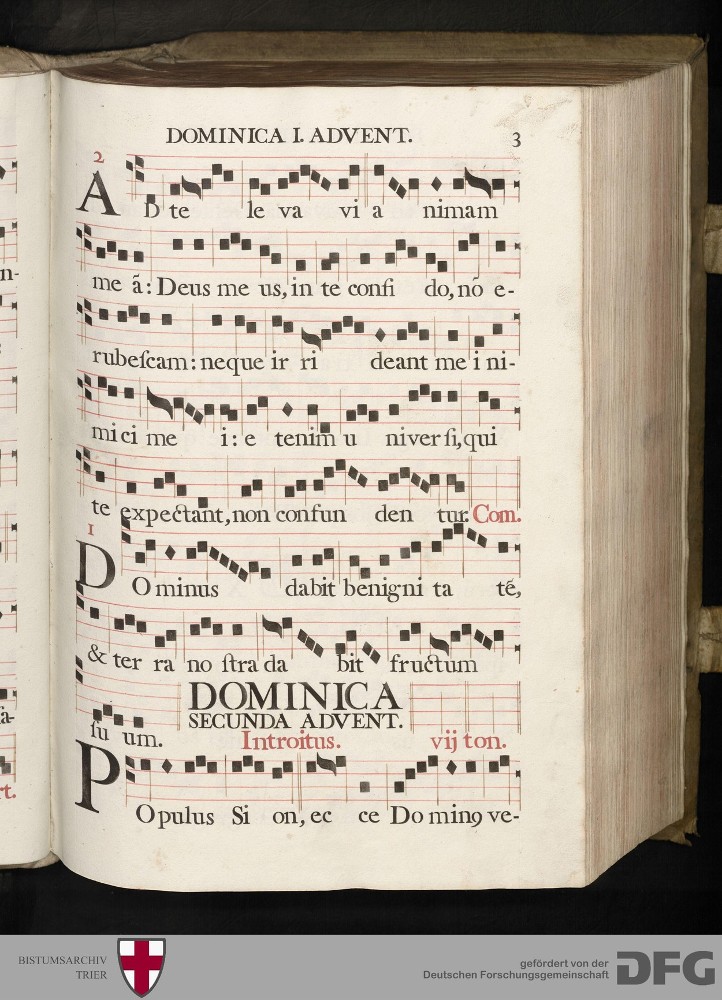 DOMINICA I. ADVENT. 3
2
AD te le va vi a nimam
me ã: Deus me us, in te confi do, nõ e-
rubeſcam: neque ir ri deant me i ni-
mi ci me i: e tenim u niver ſi, qui
te expectant, non confun den tur. Com.
1
DOminus dabit benigni ta tẽ,
& ter ra no ſtra da bit fructum
DOMINICA
SECUNDA ADVENT.
ſu um. Introitus. vij ton.
POpulus Si on, ec ce Do minꝯ ve-
n-
:
ſa-
rt.
BISTUMSARCHIV
TRIER
gefördert von der
Deutschen Forschungsgemeinschaft
DFG